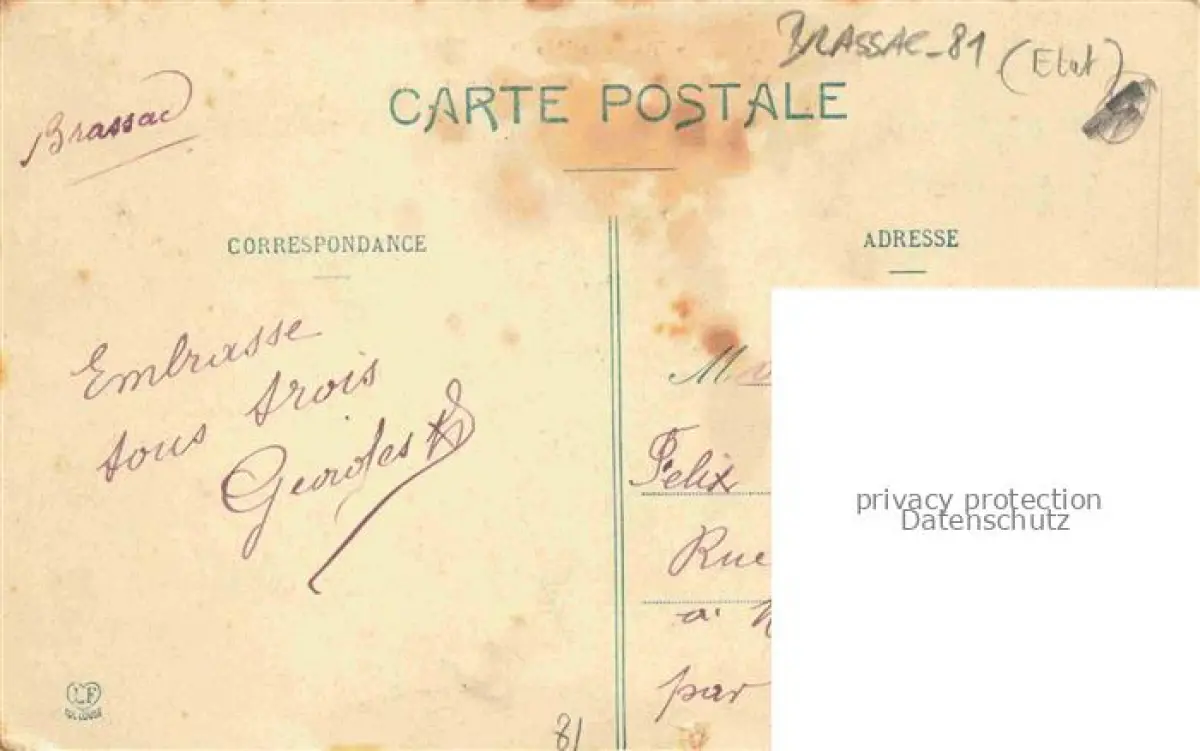 BRASSAC-81 (Etat)
Brassac
CARTE POSTALE
CORRESPONDANCE
ADRESSE
Embrasse
tous trois
Georges
M.
Felix
Rue
a
par
privacy protection
Datenschutz
LF
TOULOUSE
81